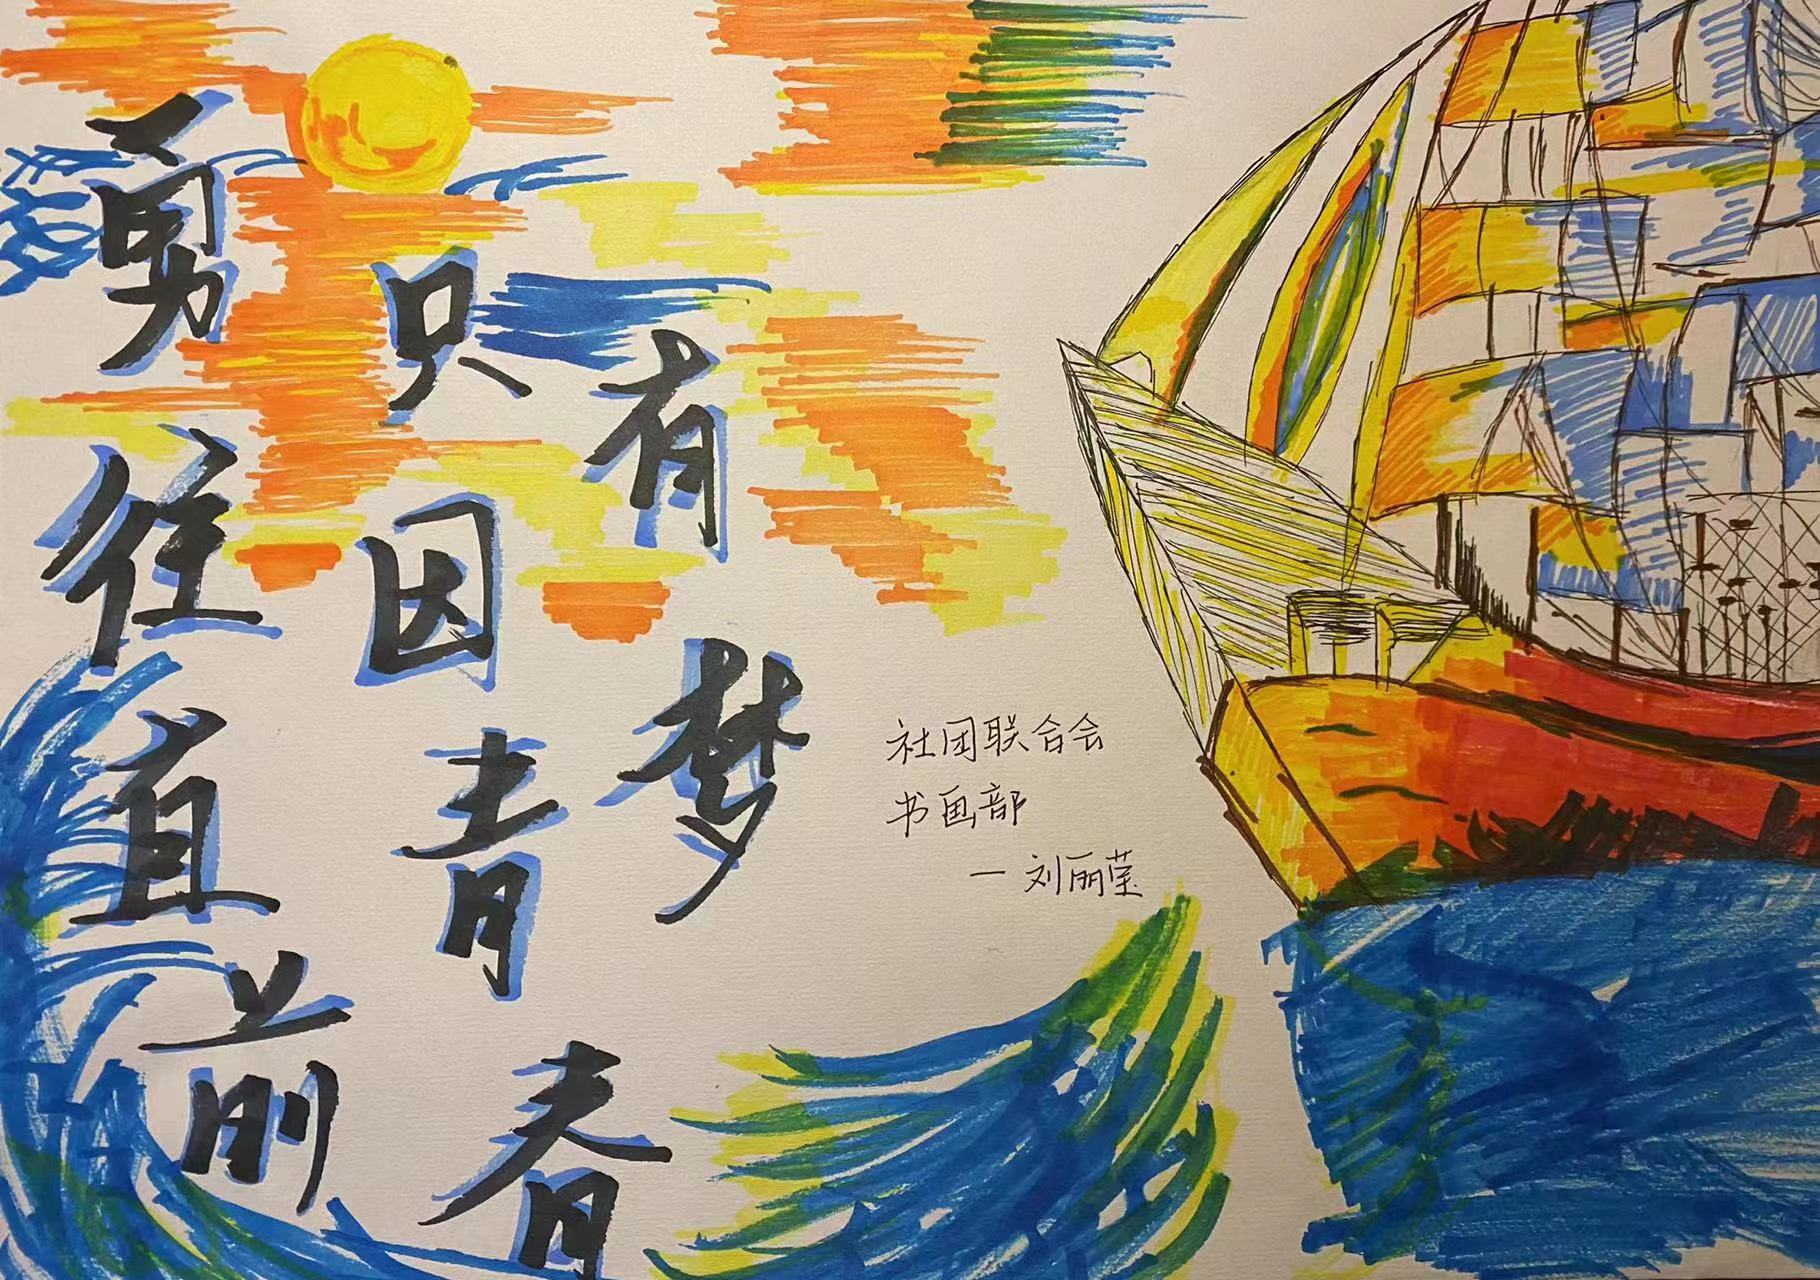 勇往直前
只因青春
有梦
社团联合会
书画部
— 刘丽莹